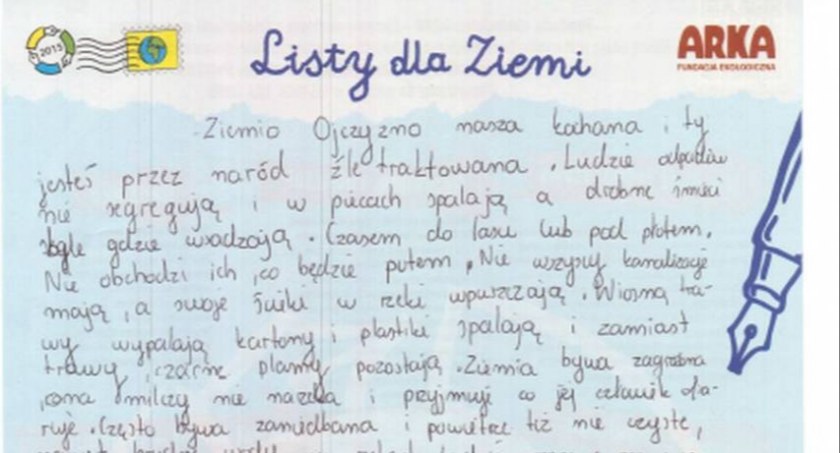 2015
Listy dla Ziemi
ARKA
FUNDACJA EKOLOGICZNA
Ziemio Ojczyzno nasza kochana i ty
jesteś przez naród źle traktowana. Ludzie odpadów
nie segregują i w piecach spalają a drobne śmieci
gdzie wsadzają. Czasem do lasu lub pod płotem.
Nie obchodzi ich, co będzie potem. Nie wszyscy kanalizację
mają, a swoje ścieki w rzeki wpuszczają. Wiosną tra-
wy wypalają kartony i plastiki spalają i zamiast
trawy, czarne plamy pozostają. Ziemia bywa
,ona milczy nie narzeka i przyjmuje co jej człowiek da-
ruje. Często bywa zaniedbana i powietrze też nie czyste,